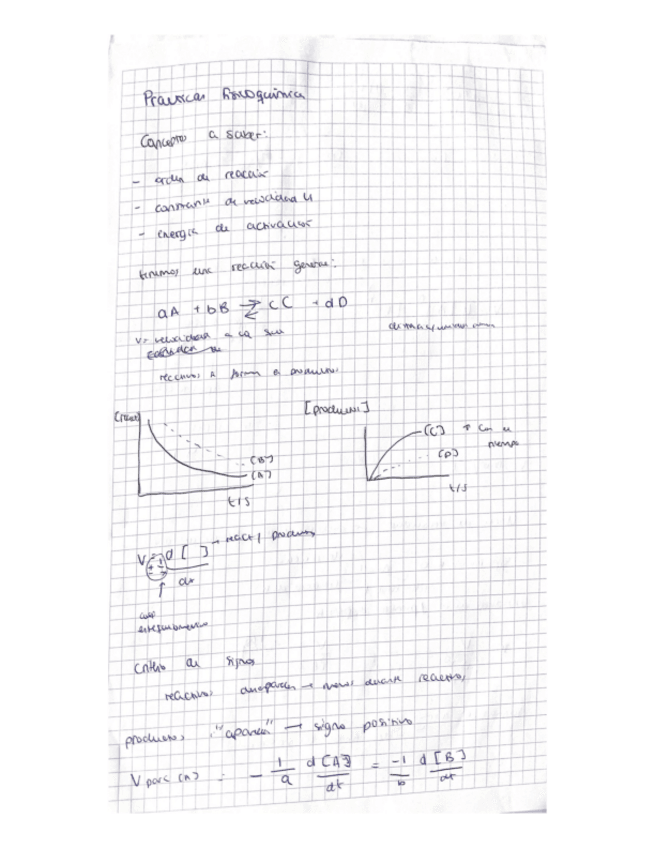 Practicas fisicoquímica
Concepto a saber:
- orden de reacción
- constante de velocidad k
- energía de activación
tenemos una reacción general:
aA + bB ⇄ cC + dD
V = velocidad a la que
reactivos a forman a productos
[React]
[B]
[A]
t/s
[productos]
[C] ↑ con el
tiempo
[D]
t/s
V = ± d [ ] → react / producto
dt
coef
estequiométrico
Criterio de signos
reactivos desaparecen → menos delante reactivos
productos, "aparecen" → signo positivo
V para (A) = - 1/a d[A]/dt = -1/b d[B]/dt